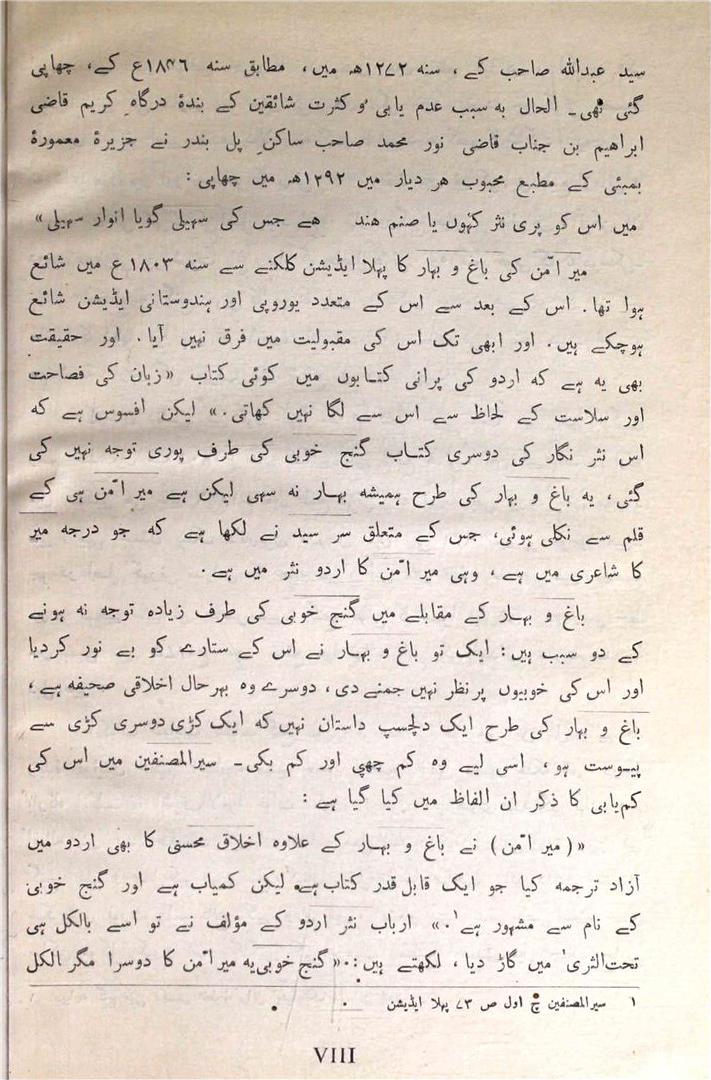 سید عبداللہ صاحب کے ، سنہ ۱۲۷۲ھ میں، مطابق سنہ ۱۸۴۶ع کے، چھاپی
گئی تھی۔ الحال بہ سبب عدم یابی و کثرت شائقین کے بندۂ درگاہِ کریم قاضی
ابراھیم بن جناب قاضی نور محمد صاحب ساکنِ پل بندر نے جزیرۂ معمورۂ
بمبئی کے مطبع محبوب ھر دیار میں ۱۲۹۲ھ میں چھاپی :
میں اس کو پری نثر کہوں یا صنم ھند ھے جس کی سہیلی گویا انوار سہیلی»
میر امّن کی باغ و بہار کا پہلا ایڈیشن کلکتے سے سنہ ۱۸۰۳ ع میں شائع
ہوا تھا. اس کے بعد سے اس کے متعدد یوروپی اور ہندوستانی ایڈیشن شائع
ہوچکے ہیں. اور ابھی تک اس کی مقبولیت میں فرق نہیں آیا. اور حقیقت
بھی یہ ہے کہ اردو کی پرانی کتابوں میں کوئی کتاب «زبان کی فصاحت
اور سلاست کے لحاظ سے اس سے لگا نہیں کھاتی.» لیکن افسوس ہے کہ
اس نثر نگار کی دوسری کتاب گنج خوبی کی طرف پوری توجہ نہیں کی
گئی، یہ باغ و بہار کی طرح ہمیشہ بہار نہ سہی لیکن ہے میر امّن ہی کے
قلم سے نکلی ہوئی، جس کے متعلق سر سید نے لکھا ہے کہ جو درجہ میر
کا شاعری میں ہے ، وہی میر امّن کا اردو نثر میں ہے.
باغ و بہار کے مقابلے میں گنج خوبی کی طرف زیادہ توجہ نہ ہونے
کے دو سبب ہیں: ایک تو باغ و بہار نے اس کے ستارے کو بے نور کردیا
اور اس کی خوبیوں پر نظر نہیں جمنے دی، دوسرے وہ بہر حال اخلاقی صحیفہ ہے ،
باغ و بہار کی طرح ایک دلچسپ داستان نہیں کہ ایک کڑی دوسری کڑی سے
پیوست ہو، اسی لیے وہ کم چھپی اور کم بکی۔ سیرالمصنفین میں اس کی
کم‌یابی کا ذکر ان الفاظ میں کیا گیا ہے :
«(میر امّن) نے باغ و بہار کے علاوہ اخلاق محسنی کا بھی اردو میں
آزاد ترجمہ کیا جو ایک قابل قدر کتاب ہے. لیکن کمیاب ہے اور گنج خوبی
کے نام سے مشہور ہے۱.» ارباب نثر اردو کے مؤلف نے تو اسے بالکل ہی
تحت‌الثریٰ میں گاڑ دیا ، لکھتے ہیں: «گنج خوبی یہ میر امّن کا دوسرا مگر الکل
۱ سیرالمصنفین ج اول ص ۷۳ پہلا ایڈیشن
VIII